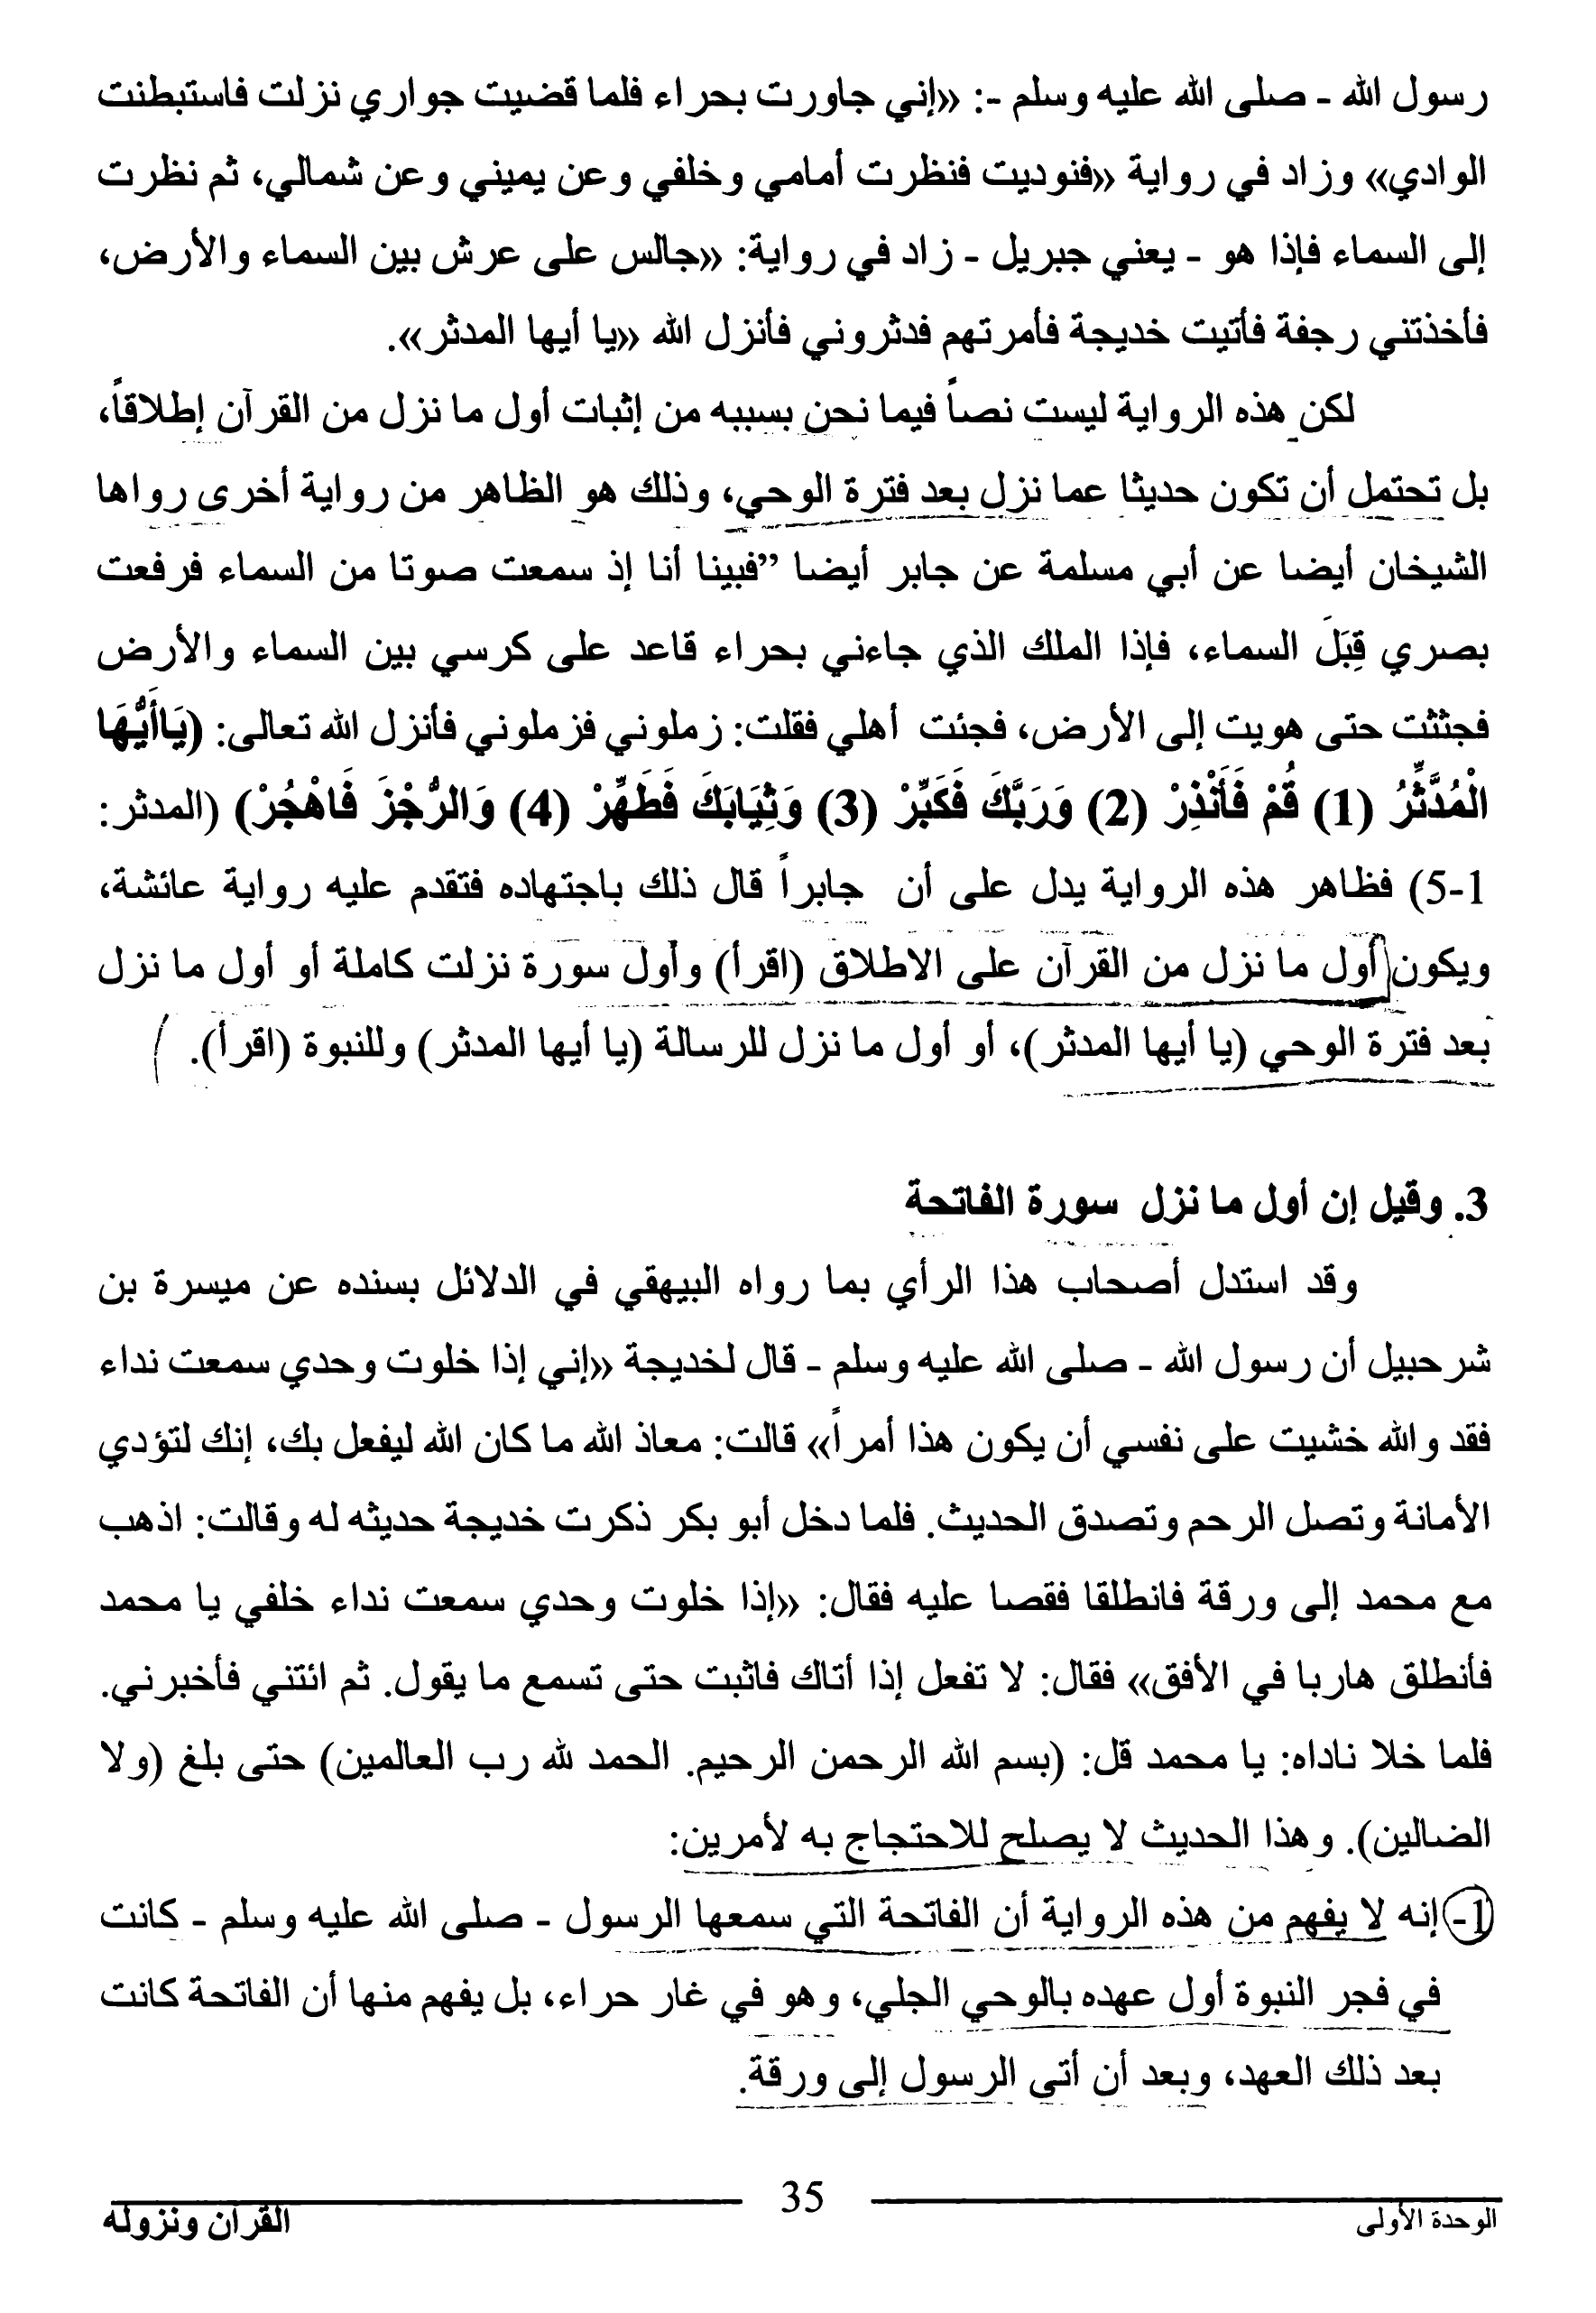 رسول الله - صلى الله عليه وسلم -: «إني جاورت بحراء فلما قضيت جواري نزلت فاستبطنت
الوادي» وزاد في رواية «فنوديت فنظرت أمامي وخلفي وعن يميني وعن شمالي، ثم نظرت
إلى السماء فإذا هو - يعني جبريل - زاد في رواية: «جالس على عرش بين السماء والأرض،
فأخذتني رجفة فأتيت خديجة فأمرتهم فدثروني فأنزل الله «يا أيها المدثر».
لكن هذه الرواية ليست نصاً فيما نحن بسببه من إثبات أول ما نزل من القرآن إطلاقاً،
بل تحتمل أن تكون حديثا عما نزل بعد فترة الوحي، وذلك هو الظاهر من رواية أخرى رواها
الشيخان أيضا عن أبي مسلمة عن جابر أيضا ”فبينا أنا إذ سمعت صوتا من السماء فرفعت
بصري قِبَلَ السماء، فإذا الملك الذي جاءني بحراء قاعد على كرسي بين السماء والأرض
فجثثت حتى هويت إلى الأرض، فجئت أهلي فقلت: زملوني فزملوني فأنزل الله تعالى: (يَاأَيُّهَا
الْمُدَّثِّرُ (1) قُمْ فَأَنْذِرْ (2) وَرَبَّكَ فَكَبِّرْ (3) وَثِيَابَكَ فَطَهِّرْ (4) وَالرُّجْزَ فَاهْجُرْ) (المدثر:
1-5) فظاهر هذه الرواية يدل على أن جابراً قال ذلك باجتهاده فتقدم عليه رواية عائشة،
ويكون أول ما نزل من القرآن على الاطلاق (اقرأ) وأول سورة نزلت كاملة أو أول ما نزل
بعد فترة الوحي (يا أيها المدثر)، أو أول ما نزل للرسالة (يا أيها المدثر) وللنبوة (اقرأ).
3. وقيل إن أول ما نزل سورة الفاتحة
وقد استدل أصحاب هذا الرأي بما رواه البيهقي في الدلائل بسنده عن ميسرة بن
شرحبيل أن رسول الله - صلى الله عليه وسلم - قال لخديجة «إني إذا خلوت وحدي سمعت نداء
فقد والله خشيت على نفسي أن يكون هذا أمراً» قالت: معاذ الله ما كان الله ليفعل بك، إنك لتؤدي
الأمانة وتصل الرحم وتصدق الحديث. فلما دخل أبو بكر ذكرت خديجة حديثه له وقالت: اذهب
مع محمد إلى ورقة فانطلقا فقصا عليه فقال: «إذا خلوت وحدي سمعت نداء خلفي يا محمد
فأنطلق هاربا في الأفق» فقال: لا تفعل إذا أتاك فاثبت حتى تسمع ما يقول. ثم ائتني فأخبرني.
فلما خلا ناداه: يا محمد قل: (بسم الله الرحمن الرحيم. الحمد لله رب العالمين) حتى بلغ (ولا
الضالين). وهذا الحديث لا يصلح للاحتجاج به لأمرين:
1- إنه لا يفهم من هذه الرواية أن الفاتحة التي سمعها الرسول - صلى الله عليه وسلم - كانت
في فجر النبوة أول عهده بالوحي الجلي، وهو في غار حراء، بل يفهم منها أن الفاتحة كانت
بعد ذلك العهد، وبعد أن أتى الرسول إلى ورقة.
الوحدة الأولى
35
القرآن ونزوله